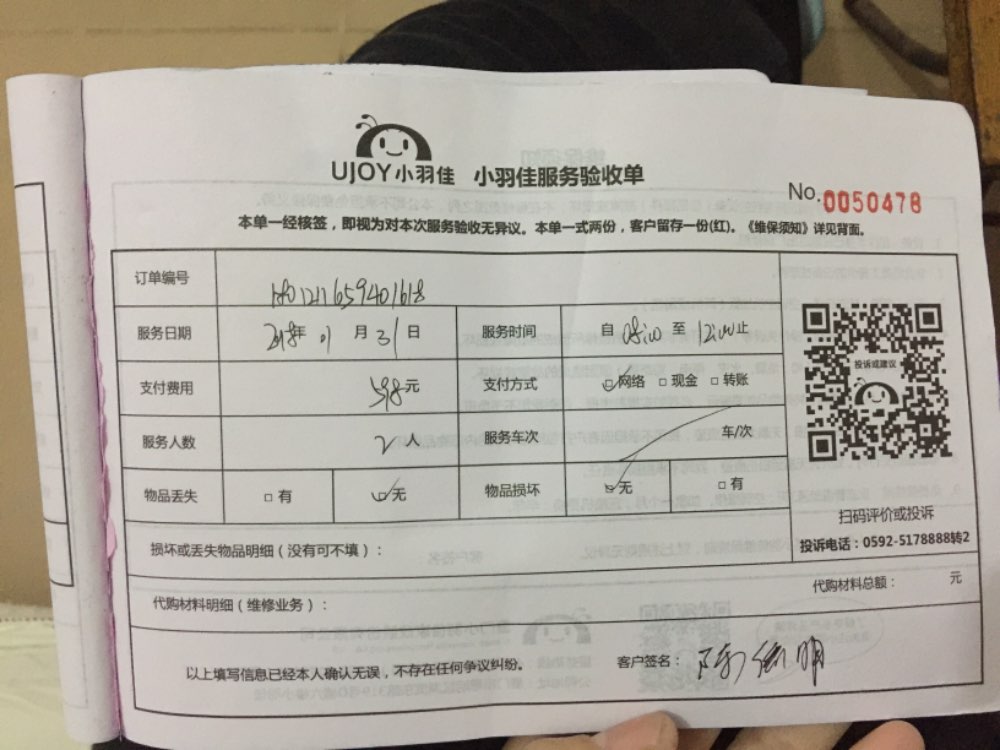 UJOY小羽佳 小羽佳服务验收单
No.0050478
本单一经核签，即视为对本次服务验收无异议。本单一式两份，客户留存一份(红)。《维保须知》详见背面。
订单编号
服务日期 2018年 01 月 31 日 服务时间 自 08:00 至 12:00止
支付费用 598元 支付方式 ☑网络 □现金 □转账
服务人数 2人 服务车次 车/次
物品丢失 □有 ☑无 物品损坏 ☑无 □有
投诉或建议
扫码评价或投诉
投诉电话：0592-5178888转2
损坏或丢失物品明细（没有可不填）：
代购材料明细（维修业务）：
代购材料总额： 元
以上填写信息已经本人确认无误，不存在任何争议纠纷。 客户签名：